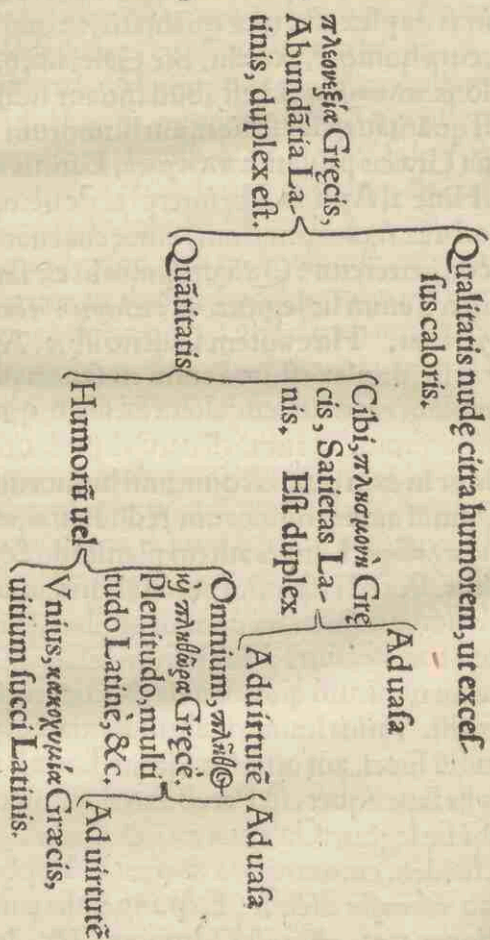 πλεονεξία Gręcis,
Abundãtia La-
tinis, duplex eſt.
Qualitatis nudę citra humorem, ut exceſ-
ſus caloris.
Quãtitatis
Cibi, πλησμονὴ Grę
cis, Satietas La-
nis. Eſt duplex
Ad uaſa
Ad uirtutẽ
Humorũ uel
Omnium, πλῆθος
ἢ πληθώρα Gręcè,
Plenitudo, multi
tudo Latinè, &c.
Ad uaſa
Ad uirtutẽ
Vnius, κακοχυμία Græcis,
uitium ſucci Latinis.